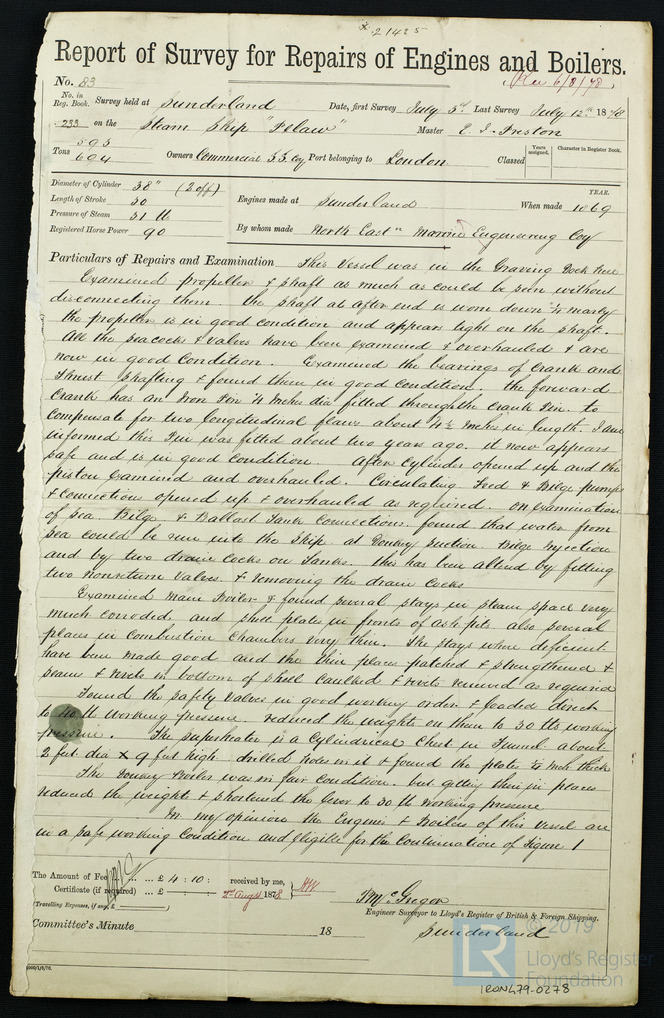 × 21425
Report of Survey for Repairs of Engines and Boilers.
No. 83
Rec 6/8/78
No. in Reg. Book. Survey held at Sunderland Date, first Survey July 5th Last Survey July 12th 1878
233 on the Steam Ship "Pelaw" Master E. J. Preston
Tons 595
694
Owners Commercial SS Coy Port belonging to London Classed Years assigned. Character in Register Book.
Diameter of Cylinder 38" (2 off)
Length of Stroke 30
Pressure of Steam 31 lb
Registered Horse Power 90
Engines made at Sunderland YEAR. When made 1869
By whom made North Eastn Marine Engineering Coy
Particulars of Repairs and Examination This Vessel was in the Graving Dock here
Examined propeller & shaft as much as could be seen without
disconnecting them. The shaft at after end is worn down 1/4 nearly
the propeller is in good condition and appears tight on the shaft.
All the sea cocks & valves have been examined & overhauled & are
now in good Condition. Examined the bearings of Crank and
Thrust shafting & found them in good condition. The forward
Crank has an Iron Pin 4 inches dia fitted through the Crank Pin. to
Compensate for two longitudinal flaws about 4 1/2 inches in length. I am
informed this Pin was fitted about two years ago. it now appears
safe and is in good condition. After Cylinder opened up and the
piston Examined and overhauled. Circulating Feed & Bilge pumps
& Connections opened up & overhauled as required. On examination
of Sea. Bilge & Ballast Tank Connections. found that water from
sea could be run into the Ship at Donkey Suction. Bilge Injection
and by two drain Cocks on Tanks. this has been altered by fitting
two nonreturn valves. & removing the drain Cocks
Examined Main Boiler & found several stays in steam space very
much corroded, and shell plates in fronts of ash pits also several
places in Combustion Chambers very thin. The stays where deficient
have been made good and the thin places patched & strengthened &
seams & rivets in bottom of shell caulked & rivets renewed as required
Found the Safety Valves in good working order & loaded direct
to 40 lb working pressure. reduced the weights on them to 30 lbs working
pressure. The superheater is a Cylindrical Chest in Funnel about
2 feet dia × 9 feet high. drilled holes in it & found the plates 1/2 inch thick
The Donkey Boiler was in fair Condition. but getting thin in places
reduced the weight & shortened the lever to 30 lb working pressure
In my opinion the Engines & Boilers of this Vessel are
in a safe working Condition and eligible for the Continuation of Figure 1
The Amount of Fee ... £ 4 : 10 : received by me,
Certificate (if required) ... £ : : 2nd Augst 1878
Travelling Expenses, if any, £
J McGregor
Engineer Surveyor to Lloyd's Register of British & Foreign Shipping.
Sunderland
Committee's Minute 18
© 2019
LR
Lloyd's Register
Foundation
IRON479-0278